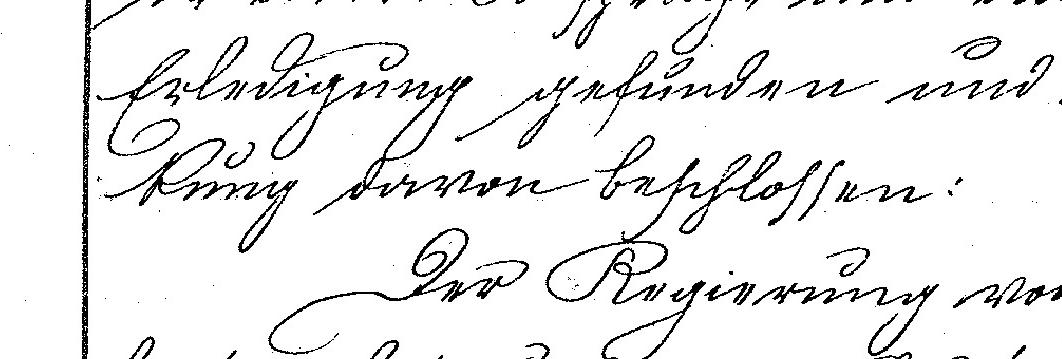 Erledigung gefunden und
kung davon beschlossen:
Der Regierung von